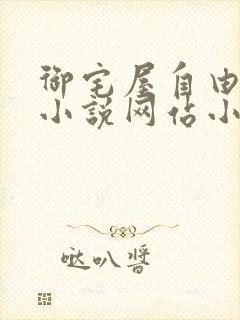 御宅屋自由
小说网佔小
哒叭酱